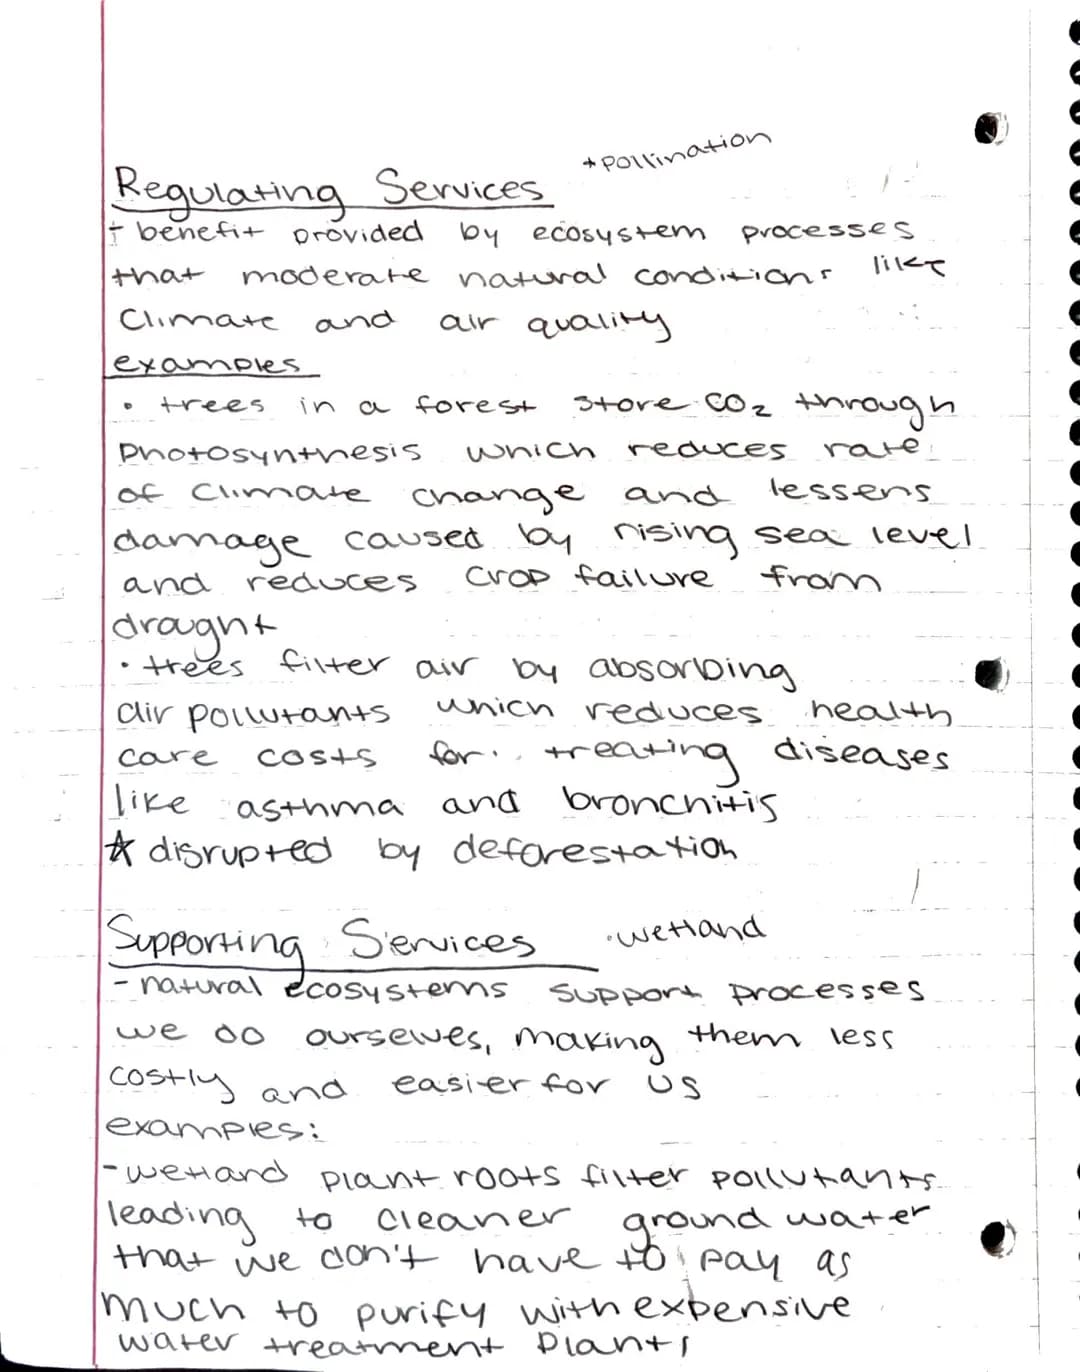 +pollination
Regulating Services
+ benefit provided by ecosystem processes
that moderate natural conditions like
Climate and air quality
examples
• trees in a forest store CO₂ through
Photosynthesis which reduces rate
of climate change and lessens
damage caused by rising sea level
and reduces crop failure from
draught
• trees filter air by absorbing
air pollutants which reduces health
care costs for treating diseases
like asthma and bronchitis
☆ disrupted by deforestation
Supporting Services •wetland
- natural ecosystems support processes
we do ourselves, making them less
costly and easier for us
examples:
-wetland plant roots filter pollutants
leading to cleaner ground water
that we don't have to pay as
much to purify with expensive
water treatment plants